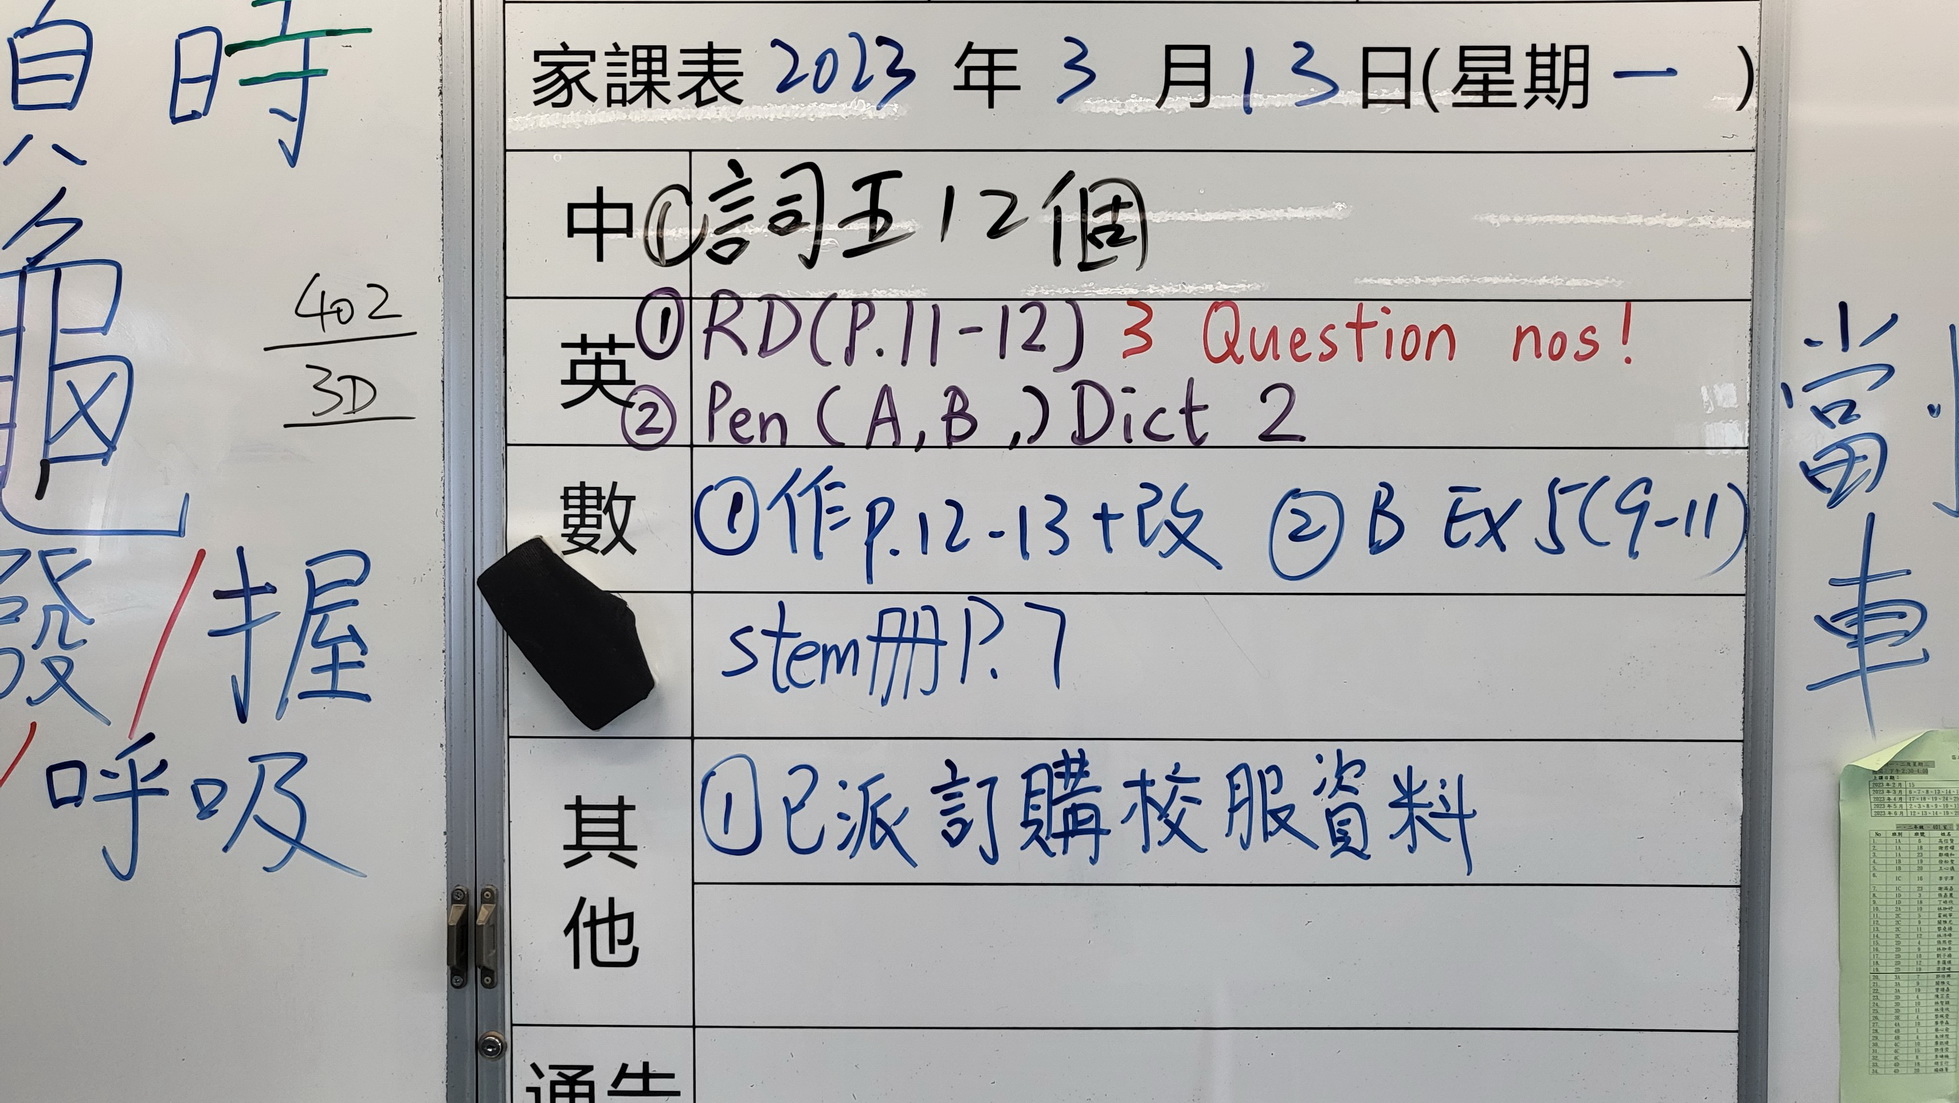 時
402
3D
發/握
呼吸
家課表 2023 年 3 月 13 日(星期一 )
中 ①詞五12個
英 ①RD(P.11-12) 3 Question nos!
②Pen(A,B,)Dict 2
數 ①作P.12-13+改 ②B Ex 5(9-11)
stem冊P.7
其他 ①已派訂購校服資料
通告
當
車